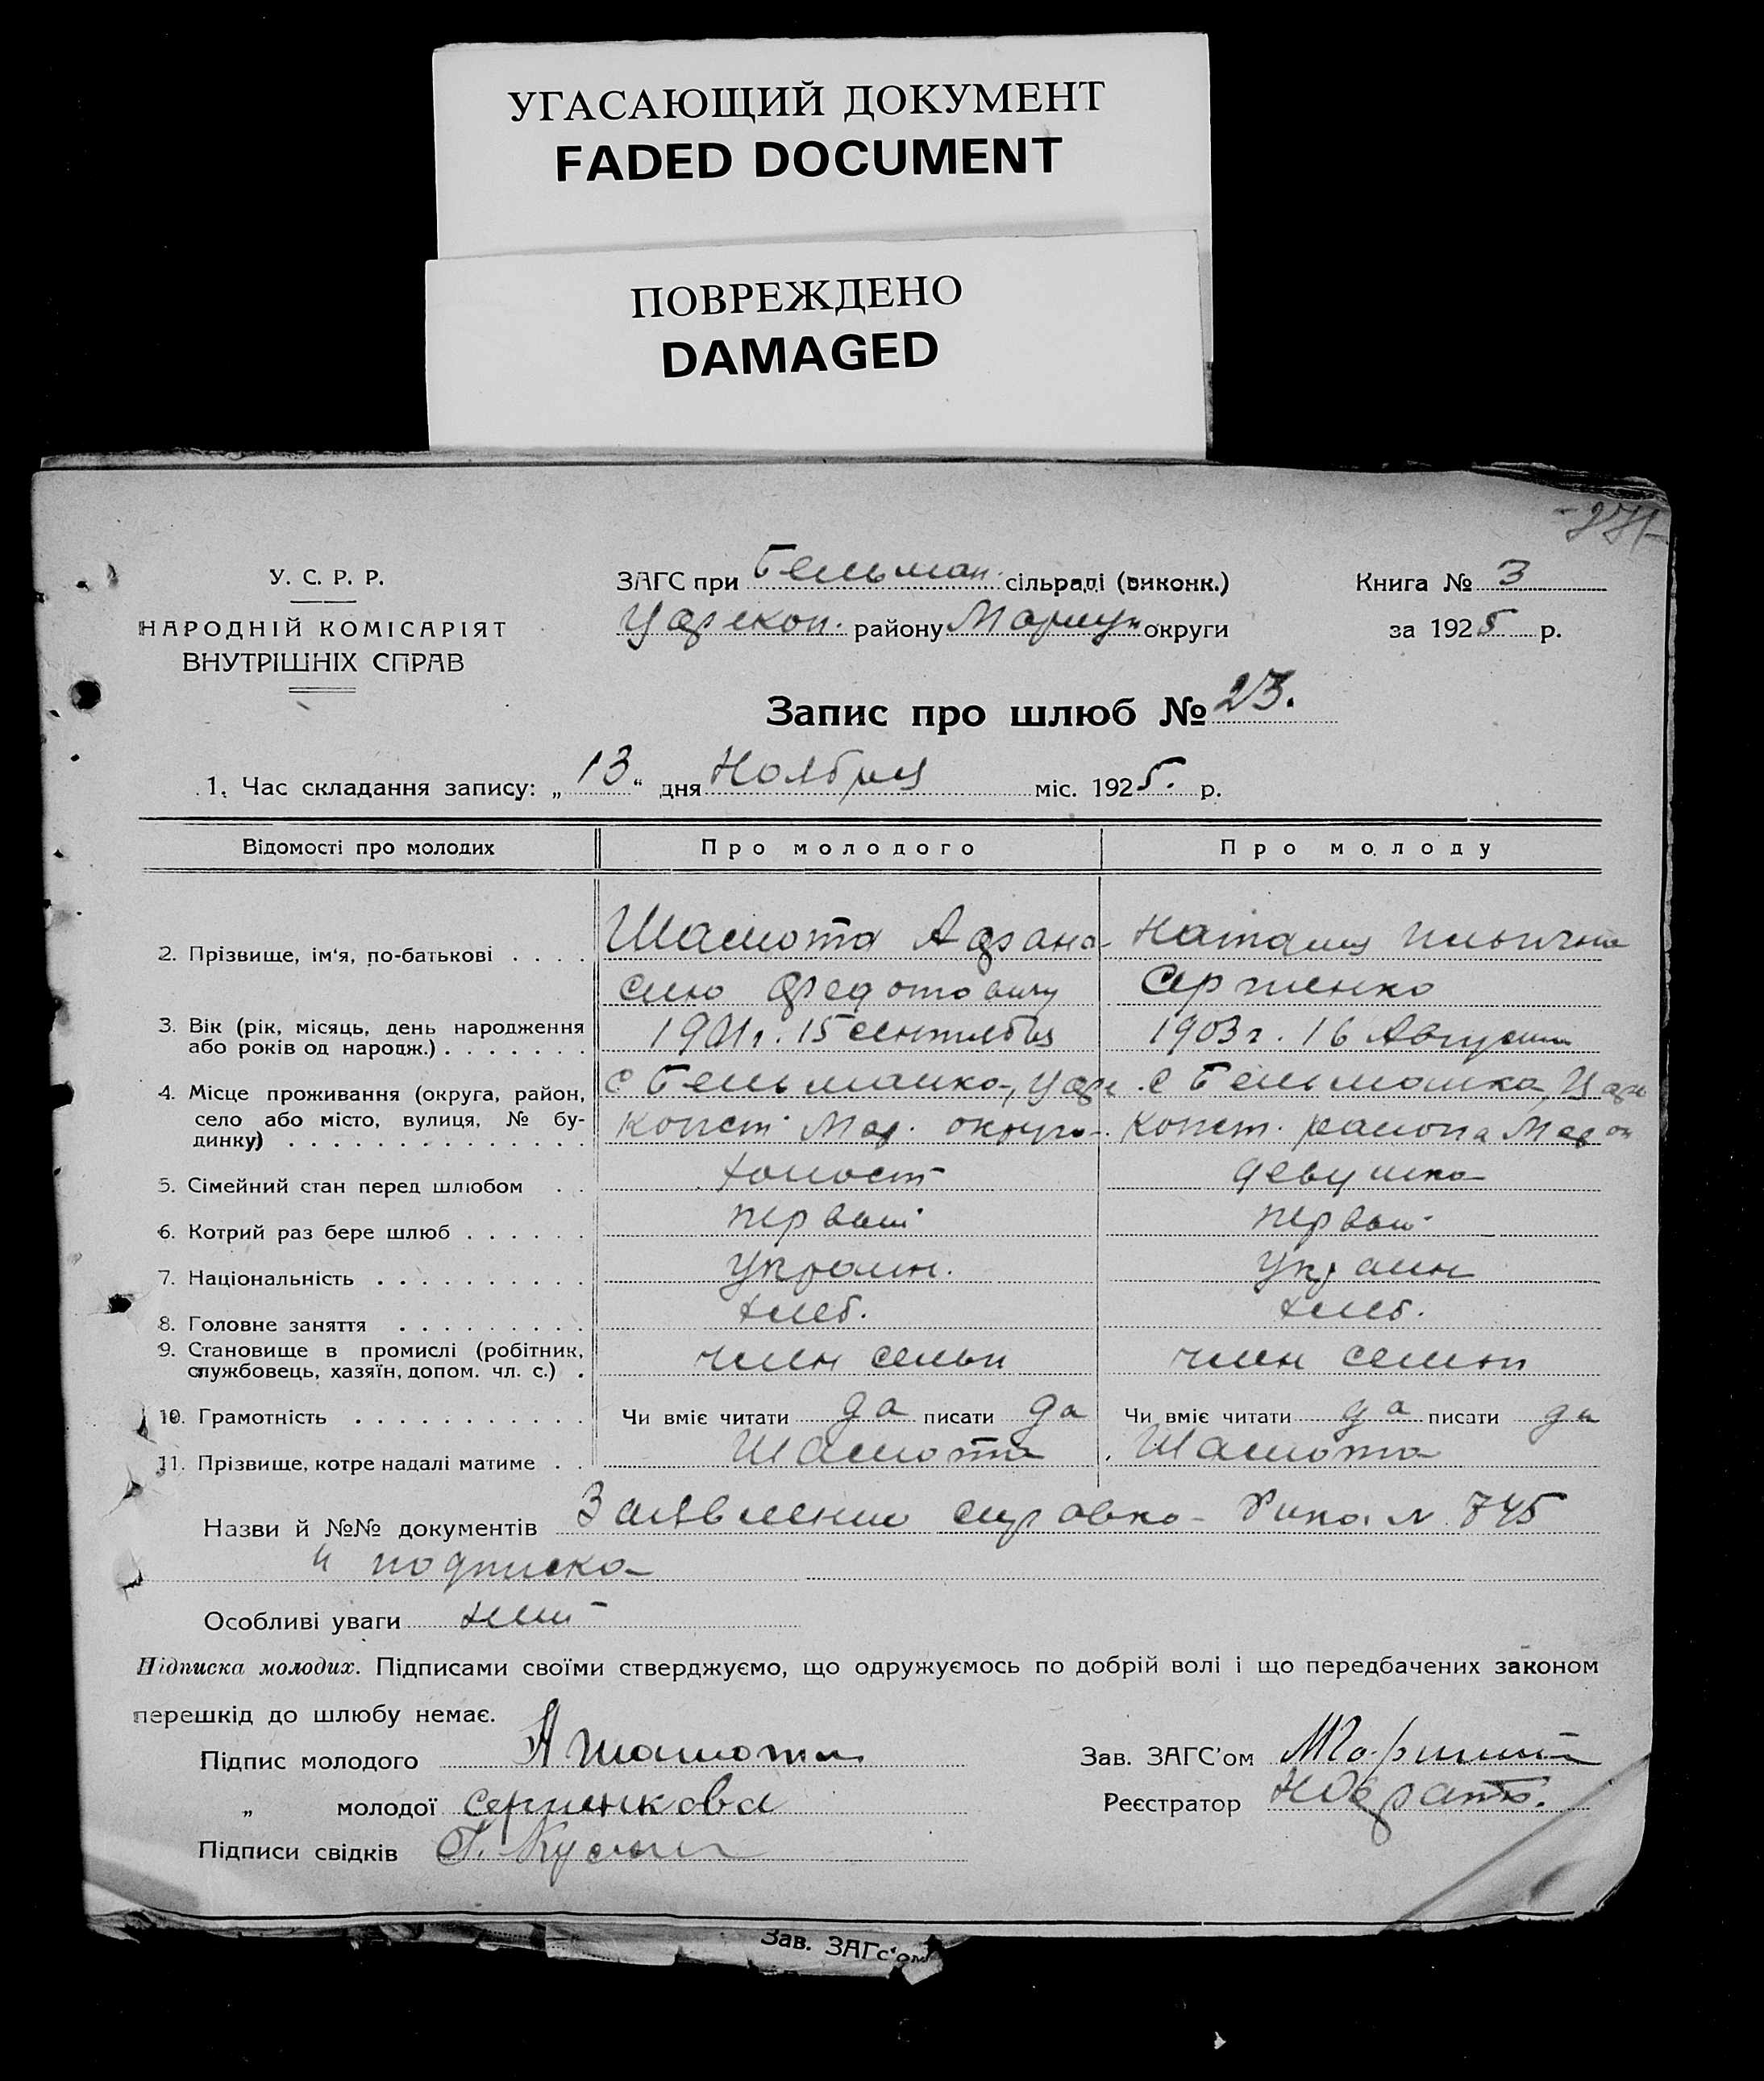 УГАСАЮЩИЙ ДОКУМЕНТ
FADED DOCUMENT
ПОВРЕЖДЕНО
DAMAGED
У. С. Р. Р.
НАРОДНІЙ КОМІСАРІЯТ
ВНУТРІШНІХ СПРАВ
ЗАГС при Бельман. сільраді (виконк.)
Царекон. району Мариуп округи
Книга № 3
за 1925 р.
Запис про шлюб № 23.
1. Час складання запису: „13“ дня Ноября міс. 1925. р.
Відомості про молодих Про молодого Про молоду
2. Прізвище, ім‘я, по-батькові . . . . Шамота Афана- Наталия Ильична
сию Федотовичу Серженко
3. Вік (рік, місяць, день народження
або років од народж.) . . . . . . . 1901г. 15 сентября 1903г. 16 Августа
4. Місце проживання (округа, район, с Бельманка, Царе с Бельманка, Царе
село або місто, вулиця, № бу-
динку) . . . . . . . . . . . . . . Конст. Мар. округа Конст. района Мар ок
5. Сімейний стан перед шлюбом . . холост девушка
6. Котрий раз бере шлюб . . . . . . первый первый
7. Національність . . . . . . . . . . Украин. Украин
8. Головне заняття . . . . . . . . . хлеб. хлеб.
9. Становище в промислі (робітник,
службовець, хазяїн, допом. чл. с.) . член семьи член семьи
10. Грамотність . . . . . . . . . . . Чи вміє читати да писати да Чи вміє читати да писати да
11. Прізвище, котре надалі матиме . . Шамота Шамота
Назви й №№ документів Заявление справка Рика. N 745
и подписка
Особливі уваги нет
Підписка молодих. Підписами своїми стверджуємо, що одружуємось по добрій волі і що передбачених законом
перешкід до шлюбу немає.
Підпис молодого А Шамота Зав. ЗАГС’ом
„ молодої Серженкова Реєстратор
Підписи свідків
Зав. ЗАГс‘ом